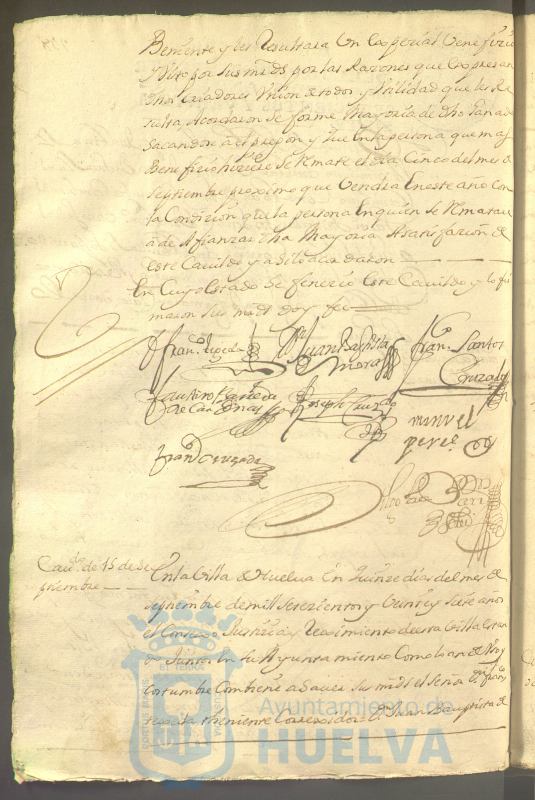 y les Resultara Un Beneficio
por sus mds por las Razones que expresan
dhos Union de todos y Utilidad que les Re
sulta Acordaron se forme Mayoria de dho
Sacandose a el pregon y que En la persona que mas
Beneficio hiciese se Remate el dia Cinco del mes de
Septiembre proximo que Vendra En este año Con
la Condizion que la persona En quien se Rematare
a de Afianzar dha Mayoria A satisfazion de
este Cavildo y asi lo acordaron
En Cuyo estado se fenezio este Cavildo y lo fir
maron sus mds doy fee
Juan Baptista
de Mora
franco Santos
Cruzado
de Cardenas
Joseph Cruzado
manuel
pere
franco Cruzado
Cavdo de 15 de Se
ptiembre
En la Villa de Huelva En quinze dias del mes de
septiembre de mill setezientos y Veinte y siete años
el Conzejo Justizia y Reximiento de esta Villa estan
do Juntos En su Ayuntamiento Como lo an de Uso y
costumbre Combiene a saver sus mds el señor Dn franco
theniente Correxidor Dn Juan Bauptista de
PORTUS MARIS
ET TERRÆ
CUSTODIA
Ayuntamiento de
HUELVA